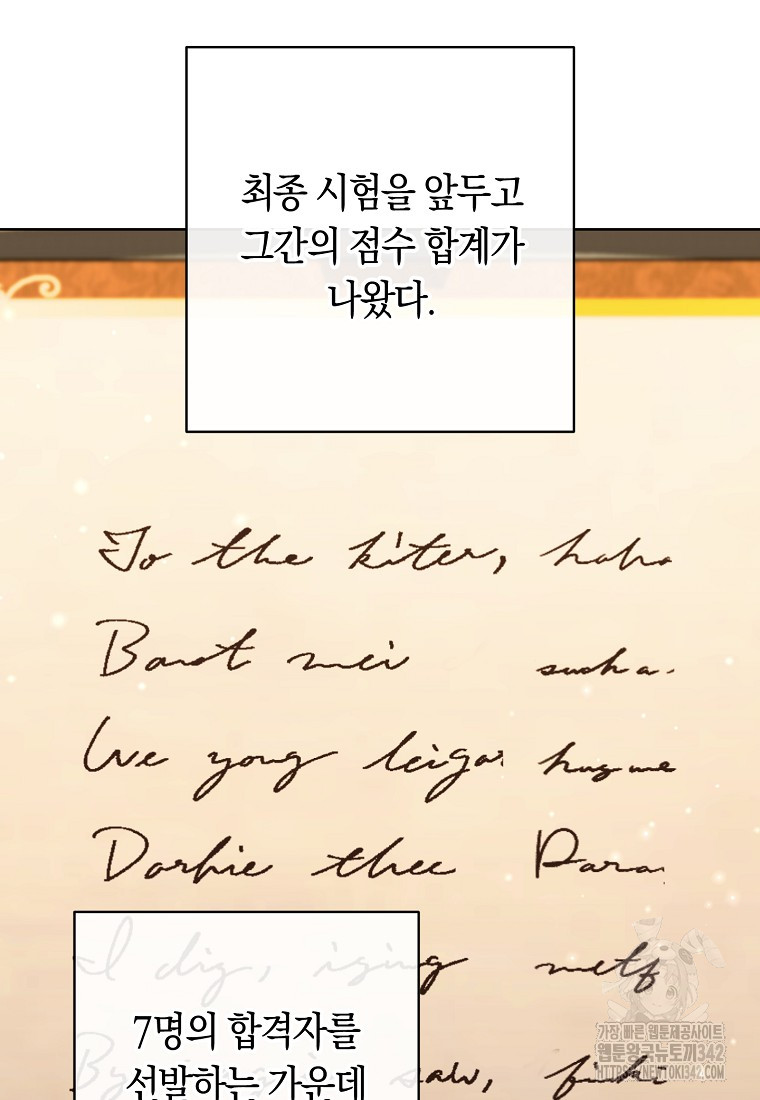 최종 시험을 앞두고
그간의 점수 합계가
나왔다.
To the kiter, haha
Barot mei such a.
We yong leigar hug me
Dorhie thee Para
I dig, iging metf
7명의 합격자를
선발하는 가운데
가장 빠른 웹툰제공사이트
뉴토끼342
HTTPS://NEWTOKI342.COM